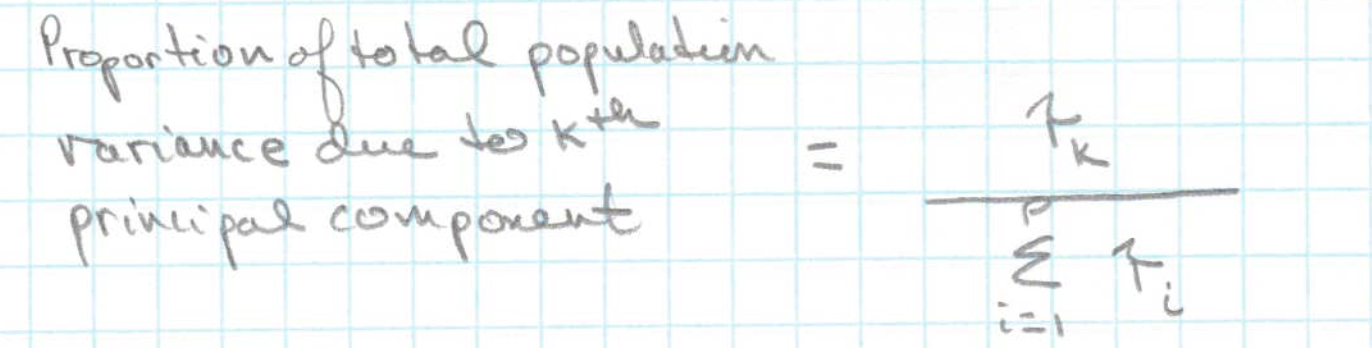 Proportion of total population
variance due to kth
principal component
= λk / Σ i=1 p λi